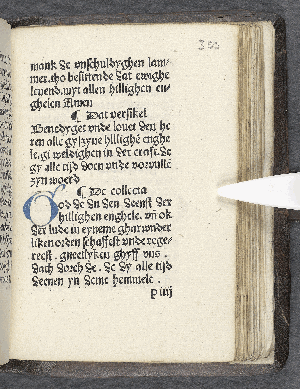 mank de vnschuldyghen lam-
mer. tho besittende dat ewighe
leuend. myt allen hillighen en-
ghelen Amen
¶ Dat versikel
Benedyget vnde louet den he
ren alle gy syne hillighē enghe
le. gi weldighen in der craft. de
gy alle tijd doen vnde vorwille
zyn woerd
¶ De collecta
God de du den deenst der
hillighen enghele. vñ ok
der lude in eyneme
liken orden schaffest vnde rege-
reest. gnedlyken ghyff vns.
dath dorch de. de dy alle tijd
deenen yn deme hemmele.
p iiij